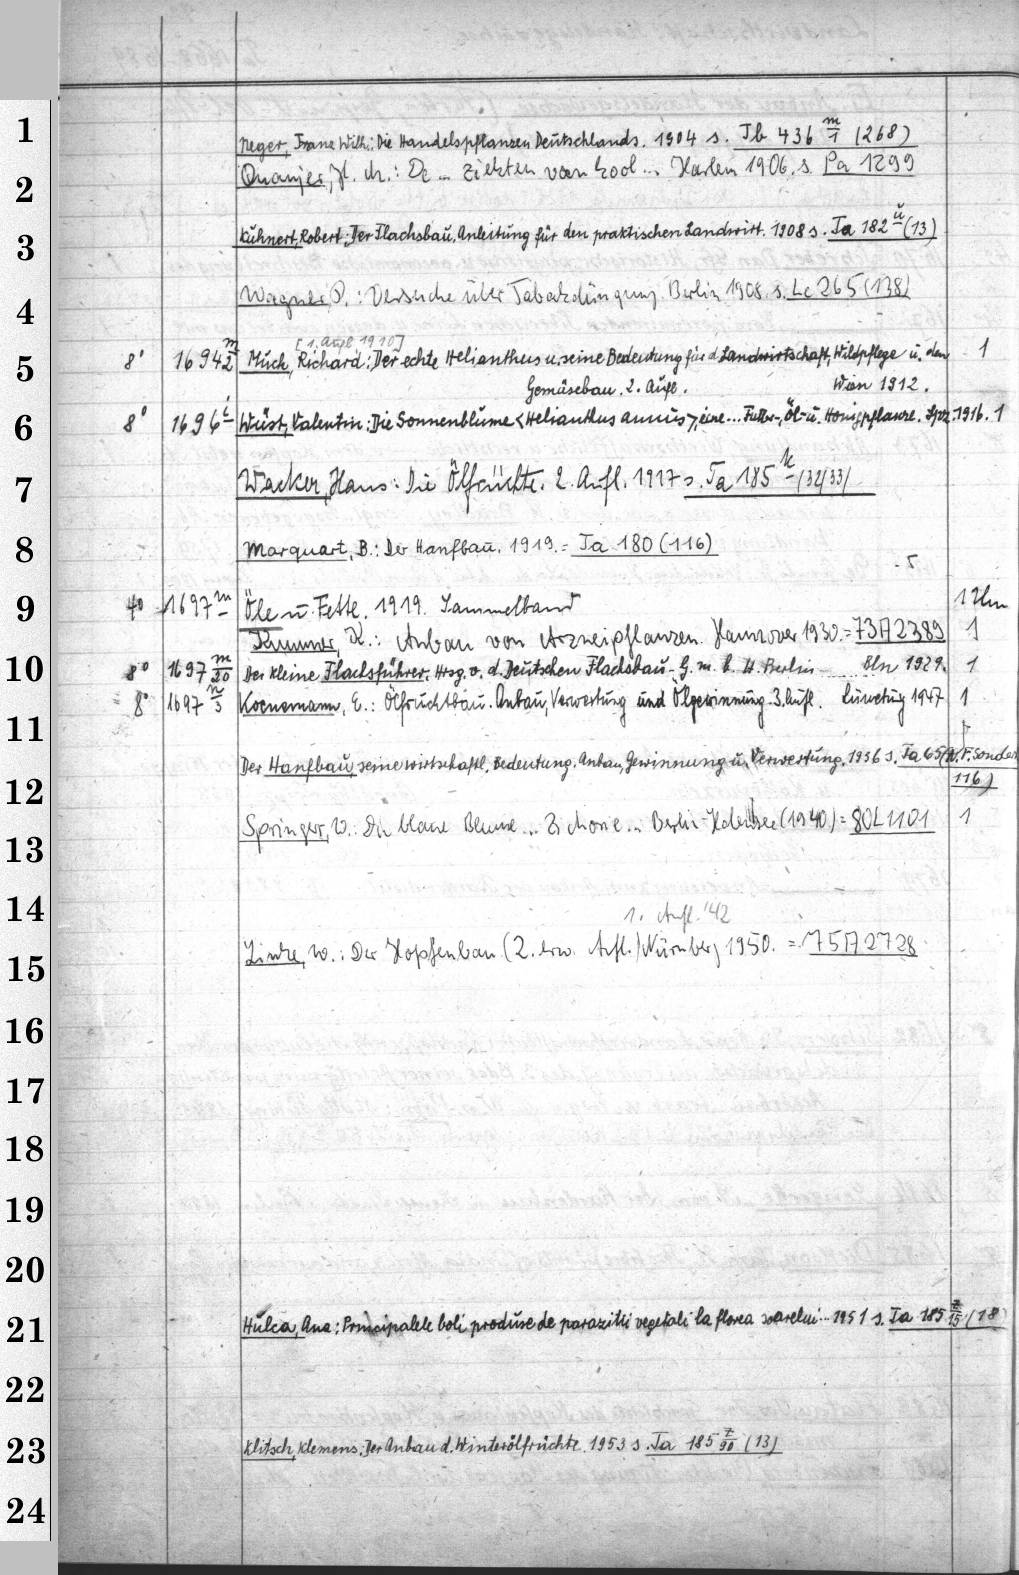 1 Neger, Franz Wilh.: Die Handelspflanzen Deutschlands. 1904 s. Jb 436 m/1 (268)
2 Quanjer, H. M.: De ... ziekten van kool ... Harlem 1906. s. Pa 1299
3 Kühnert, Robert: Der Flachsbau. Anleitung für den praktischen Landwirt. 1908 s. Ta 182 u (13)
4 Wagner, P.: Versuche über Tabakdüngung. Berlin 1908. s. Lc 265 (138)
[1. Aufl 1910]
5 8° 1694 m/2 Muck, Richard: Der echte Helianthus u. seine Bedeutung für d. Landwirtschaft, Wildpflege u. den 1
Gemüsebau. 2. Aufl. Wien 1912.
6 8° 1696 i Wüst, Valentin: Die Sonnenblume <Helianthus annus>, eine... Futter-, Öl- u. Honigpflanze. Lpz. 1916. 1
7 Wacker, Hans: Die Ölfrüchte. 2. Aufl. 1917 s. Ta 185 k (32/33)
8 Marquart, B.: Der Hanfbau. 1919. = Ta 180 (116)
9 4° 1697 m Öle u. Fette. 1919. Sammelband 1
K.: Anbau von Arzneipflanzen. Hannover 1930. = 73A2389 1
10 8° 1697 m/20 Der kleine Flachsführer. Hrsg. v. d. Deutschen Flachsbau-G. m. b. H. Berlin ... Bln 1929. 1
8° 1697 n/3 Koenemann, E.: Ölfruchtbau. Anbau, Verwertung und Ölgewinnung. 3. Aufl. 1947 1
11
Der Hanfbau, seine wirtschaftl. Bedeutung, Anbau, Gewinnung u. Verwertung. 1936 s. Ta 65 (N.F. Sonder
12 116)
Springer, W.: Die blaue Blume ... Zichorie ... Berlin-Halensee (1940) = 80L1101 1
13
14 1. Aufl. '42
15 Linke, W.: Der Hopfenbau (2. erw. Aufl.) Nürnberg 1950. = 75A2728
16
17
18
19
20
21 Hulea, Ana: Principalele boli produse de parazitii vegetali la florea soarelui ... 1951 s. Ta 185 z/15 (18)
22
23 Klitsch, Klemens: Der Anbau d. Winterölfrüchte. 1953 s. Ta 185 z/90 (13)
24